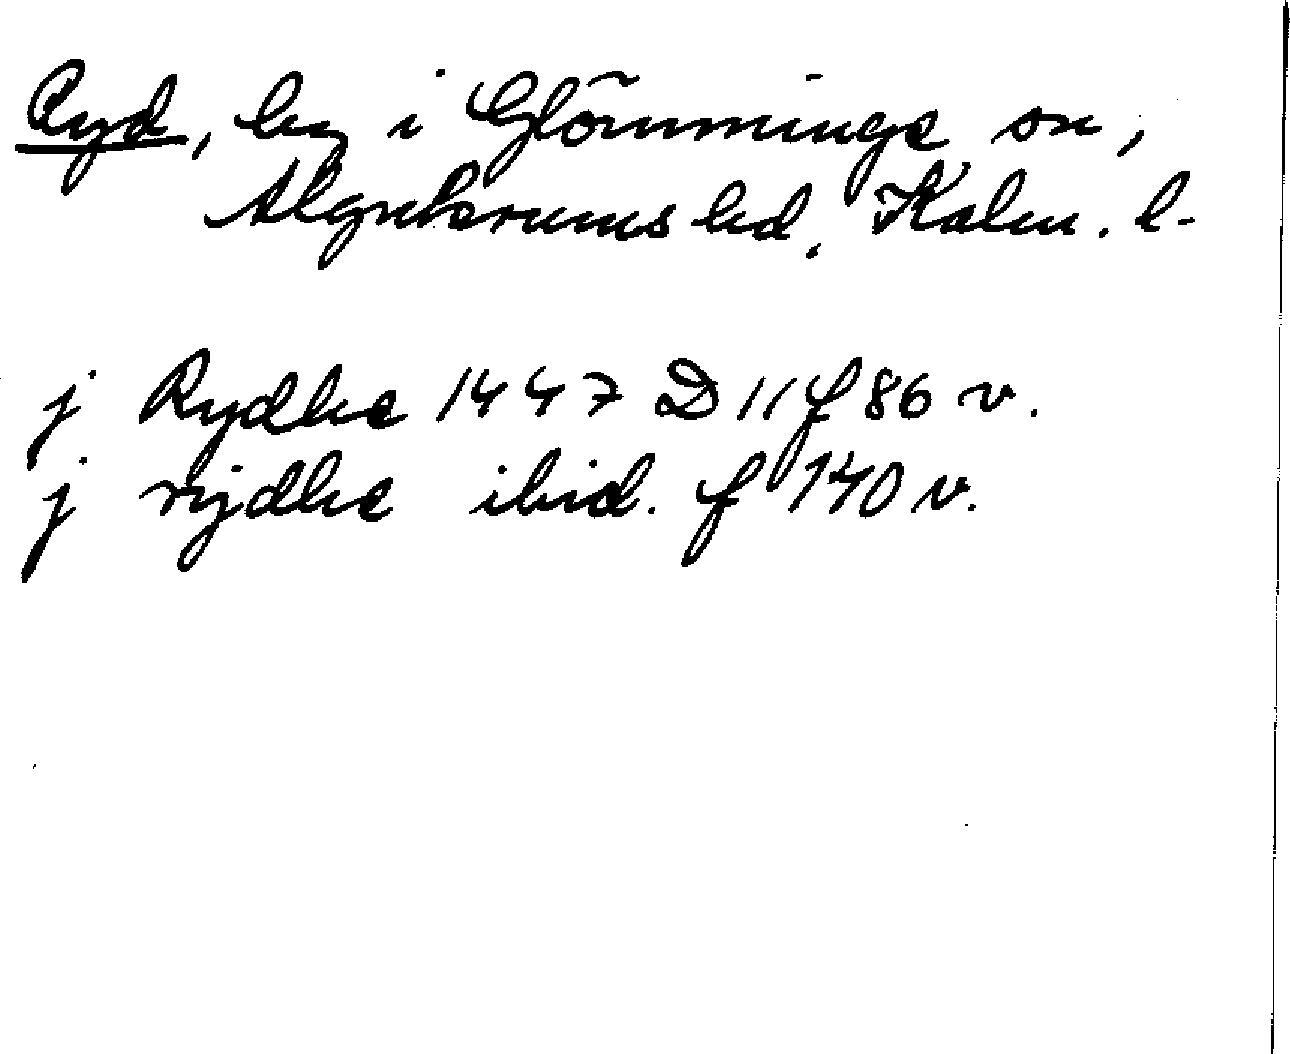 Ryd, by i Glömminge sn,
Algutsrums hd, Kalm. l.
j Rydhe 1447 D 11 f 86 v.
j rydhe ibid. f 140 v.